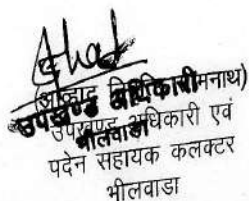 उपखण्ड अधिकारी
भीलवाडा
उपखण्ड अधिकारी एवं
पदेन सहायक कलक्टर
भीलवाडा